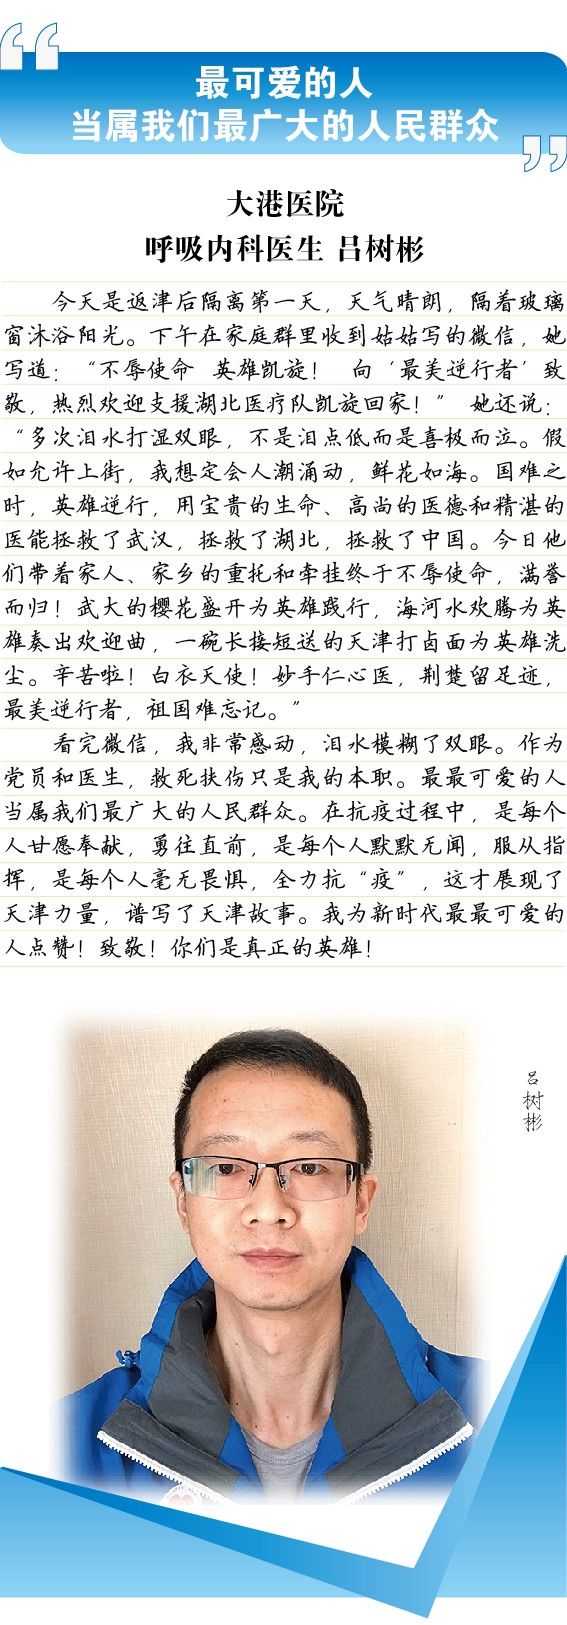 最可爱的人
当属我们最广大的人民群众
大港医院
呼吸内科医生 吕树彬
今天是返津后隔离第一天，天气晴朗，隔着玻璃
窗沐浴阳光。下午在家庭群里收到姑姑写的微信，她
写道：“不辱使命 英雄凯旋！ 向‘最美逆行者’致
敬，热烈欢迎支援湖北医疗队凯旋回家！” 她还说：
“多次泪水打湿双眼，不是泪点低而是喜极而泣。假
如允许上街，我想定会人潮涌动，鲜花如海。国难之
时，英雄逆行，用宝贵的生命、高尚的医德和精湛的
医能拯救了武汉，拯救了湖北，拯救了中国。今日他
们带着家人、家乡的重托和牵挂终于不辱使命，满誉
而归！武大的樱花盛开为英雄践行，海河水欢腾为英
雄奏出欢迎曲，一碗长接短送的天津打卤面为英雄洗
尘。辛苦啦！白衣天使！妙手仁心医，荆楚留足迹，
最美逆行者，祖国难忘记。”
看完微信，我非常感动，泪水模糊了双眼。作为
党员和医生，救死扶伤只是我的本职。最最可爱的人
当属我们最广大的人民群众。在抗疫过程中，是每个
人甘愿奉献，勇往直前，是每个人默默无闻，服从指
挥，是每个人毫无畏惧，全力抗“疫”，这才展现了
天津力量，谱写了天津故事。我为新时代最最可爱的
人点赞！致敬！你们是真正的英雄！
吕树彬